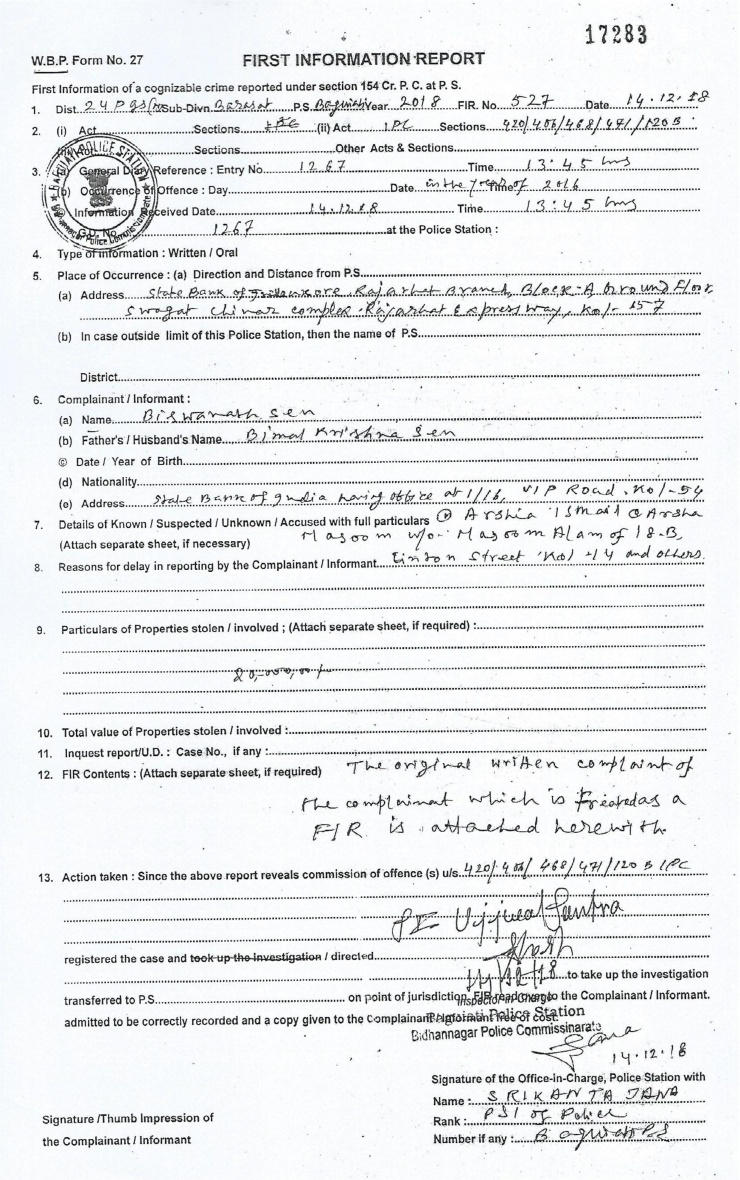 17283
W.B.P. Form No. 27
FIRST INFORMATION REPORT
First Information of a cognizable crime reported under section 154 Cr. P. C. at P. S.
1. Dist. 24 Pgs(N) Sub-Divn. Barasat P.S. Baguiati Year 2018 FIR. No. 527 Date 14.12.18
2. (i) Act Sections IPC (ii) Act IPC Sections 420/406/468/471/120B
Sections Other Acts & Sections
3. (a) General Diary Reference : Entry No. 1267 Time 13:45 hrs
(b) Occurrence of Offence : Day Date in the year of 2016 Time
Information Received Date 14.12.18 Time 13:45 hrs
G.D. No. 1267 at the Police Station :
4. Type of information : Written / Oral
5. Place of Occurrence : (a) Direction and Distance from P.S.
(a) Address State Bank of Rajarhat Branch, Block-A Ground Floor
Swagat Chinar complex Rajarhat Expressway, Kol- 157
(b) In case outside limit of this Police Station, then the name of P.S.
District
6. Complainant / Informant :
(a) Name Biswanath Sen
(b) Father's / Husband's Name Bimal Krishna Sen
© Date / Year of Birth
(d) Nationality
(e) Address State Bank of India having office at 1/16, VIP Road, Kol-54
7. Details of Known / Suspected / Unknown / Accused with full particulars ① Arshia Ismail @ Arsha
(Attach separate sheet, if necessary) Masoom w/o- Masoom Alam of 18-B,
8. Reasons for delay in reporting by the Complainant / Informant Linton Street Kol-14 and others.
9. Particulars of Properties stolen / involved ; (Attach separate sheet, if required) :
10. Total value of Properties stolen / involved :
11. Inquest report/U.D. : Case No., if any :
12. FIR Contents : (Attach separate sheet, if required) The original written complaint of
the complainat which is treated as a
FIR is attached herewith.
13. Action taken : Since the above report reveals commission of offence (s) u/s. 420/406/468/471/120B IPC
SI Ujjwal
registered the case and took up the Investigation / directed
14/12/18 to take up the investigation
transferred to P.S. on point of jurisdiction, FIR read over to the Complainant / Informant.
Inspector-in-Charge
admitted to be correctly recorded and a copy given to the Complainant / Informant free of cost.
Baguiati Police Station
Bidhannagar Police Commissinarate
14.12.18
Signature of the Office-in-Charge, Police Station with
Name : SRIKANTA JANA
Rank : PSI of Police
Number if any : Baguiati PS
Signature /Thumb Impression of
the Complainant / Informant